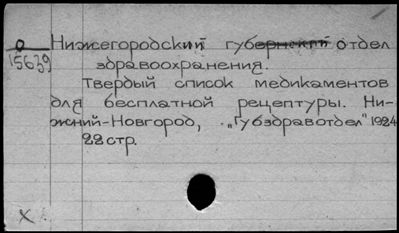 О Нижегородский губернский отдел
15639 здравоохранения.
Твердый список медикаментов
для бесплатной рецептуры. Ни-
жний-Новгород, "Губздравотдел" 1924
22 стр.
X